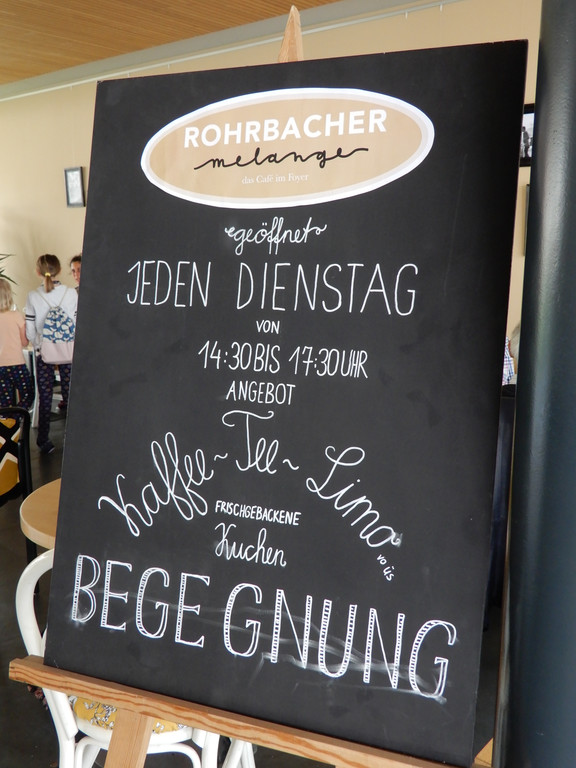 ROHRBACHER
melange
das Café im Foyer
geöffnet
JEDEN DIENSTAG
VON
14:30 BIS 17:30 UHR
ANGEBOT
Kaffee ~ Tee ~ Limo
vo üs
FRISCHGEBACKENE
Kuchen
BEGEGNUNG